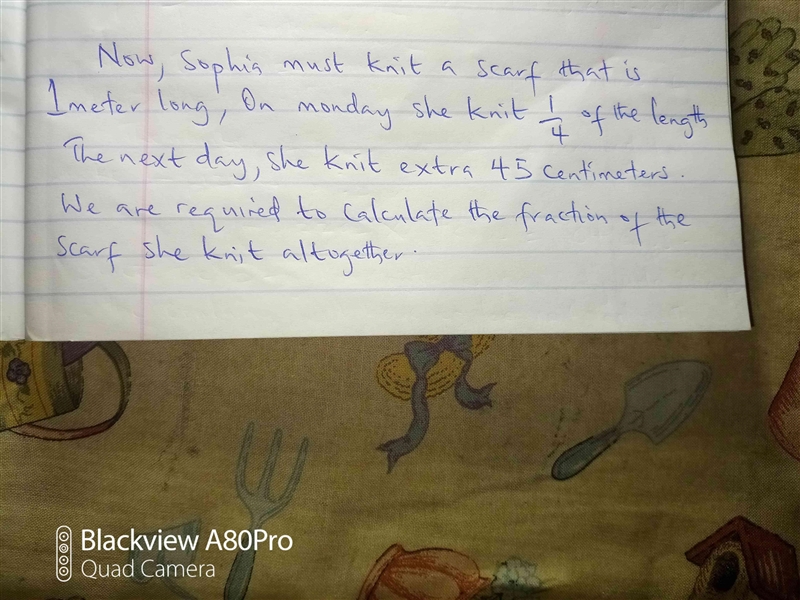 Now, Sophia must knit a scarf that is
1 meter long, On monday she knit 1/4 of the length
The next day, she knit extra 45 centimeters.
We are required to calculate the fraction of the
scarf she knit altogether.
Blackview A80Pro
Quad Camera